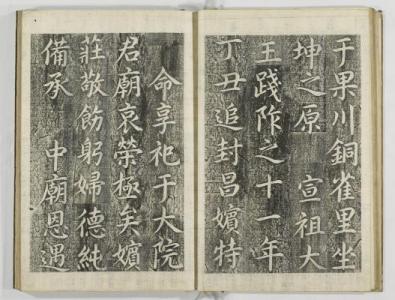 于果川銅雀里坐
坤之原 宣祖大
王踐阼之十一年
丁丑追封昌嬪特
命享祀于大院
君廟哀榮極矣嬪
莊敬飭躬婦德純
備承 中廟恩遇